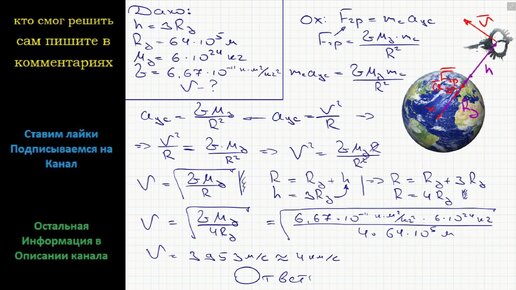 кто смог решить
сам пишите в
комментариях
Ставим лайки
Подписываемся на
Канал
Остальная
Информация в
Описании канала
Дано:
h = 3Rз
Rз = 64·10⁵ м
Mз = 6·10²⁴ кг
G = 6,67·10⁻¹¹ н·м²/кг²
V - ?
ОХ: Fгр = mc aцс
Fгр = G Mз mc / R²
mc aцс = G Mз mc / R²
aцс = G Mз / R² — aцс = V² / R
⇒ V² / R = G·Mз / R² ⇒ V² = G Mз R / R²
V = √(G Mз / R)
R = Rз + h
h = 3Rз
⇒ R = Rз + 3Rз
R = 4Rз
V = √(G Mз / 4Rз) = √(6,67·10⁻¹¹ н·м²/кг² · 6·10²⁴ кг / 4·64·10⁵ м)
V = 3953 м/с ≈ 4 км/с
Ответ:
V
h
Fгр
Rз